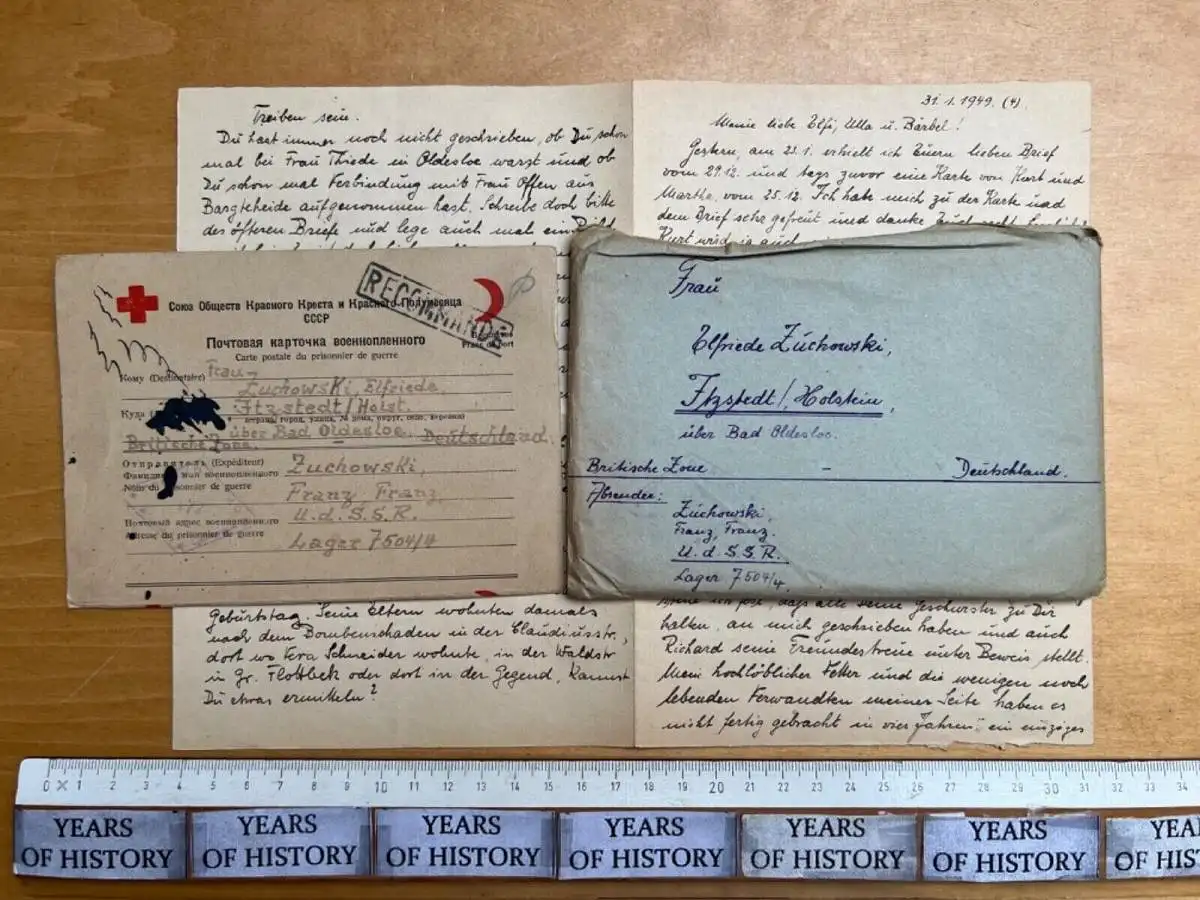 Treiben sein.
Du hast immer noch nicht geschrieben, ob Du schon
mal bei Frau Thiede in Oldesloe warst und ob
Du schon mal Verbindung mit Frau Offen aus
Bargteheide aufgenommen hast. Schreibe doch bitte
des öfteren Briefe und lege auch mal ein Bild
31.1.1949. (4)
Meine liebe Elfi, Ulla u. Bärbel!
Gestern, am 23.1. erhielt ich Euern lieben Brief
vom 29.12. und tags zuvor eine Karte von Kurt und
Martha, vom 25.12. Ich habe mich zu der Karte und
dem Brief sehr gefreut und danke Euch recht
Kurt wird ja auch
Союз Обществ Красного Креста и Красного Полумесяца
СССР
RECOMMANDÉ
Почтовая карточка военнопленного
Carte postale du prisonnier de guerre
Кому (Destinataire) Frau
Zuchowski Elfriede
Куда Itzstedt/Holst.
über Bad Oldesloe. Deutschland.
Britische Zone.
Отправитель (Expéditeur) Zuchowski,
Фамилия и имя военнопленного
Nom du prisonnier de guerre Franz Franz
U.d.S.S.R.
Почтовый адрес военнопленного
Adresse du prisonnier de guerre Lager 7504/4
Frau
Elfriede Zuchowski,
Itzstedt/Holstein,
über Bad Oldesloe.
Britische Zone - Deutschland.
Absender:
Zuchowski,
Franz, Franz.
U.d.S.S.R.
Lager 7504/4
Geburtstag. Seine Eltern wohnten damals
nach dem Bombenschaden in der Claudiusstr.,
dort wo Vera Schneider wohnte, in der Waldstr
in Gr. Flottbek oder dort in der Gegend, kannst
Du etwas ermitteln?
daß alle seine Geschwister zu Dir
halten, an mich geschrieben haben und auch
Richard seine Freundestreue unter Beweis stellt.
Mein hochlöblicher Vetter und die wenigen noch
lebenden Verwandten meiner Seite haben es
nicht fertig gebracht in vier Jahren, ein einziges
0 1 2 3 4 5 6 7 8 9 10 11 12 13 14 15 16 17 18 19 20 21 22 23 24 25 26 27 28 29 30 31 32 33 34
YEARS OF HISTORY
YEARS OF HISTORY
YEARS OF HISTORY
YEARS OF HISTORY
YEARS OF HISTORY
YEARS OF HISTORY
YEA
OF HIS